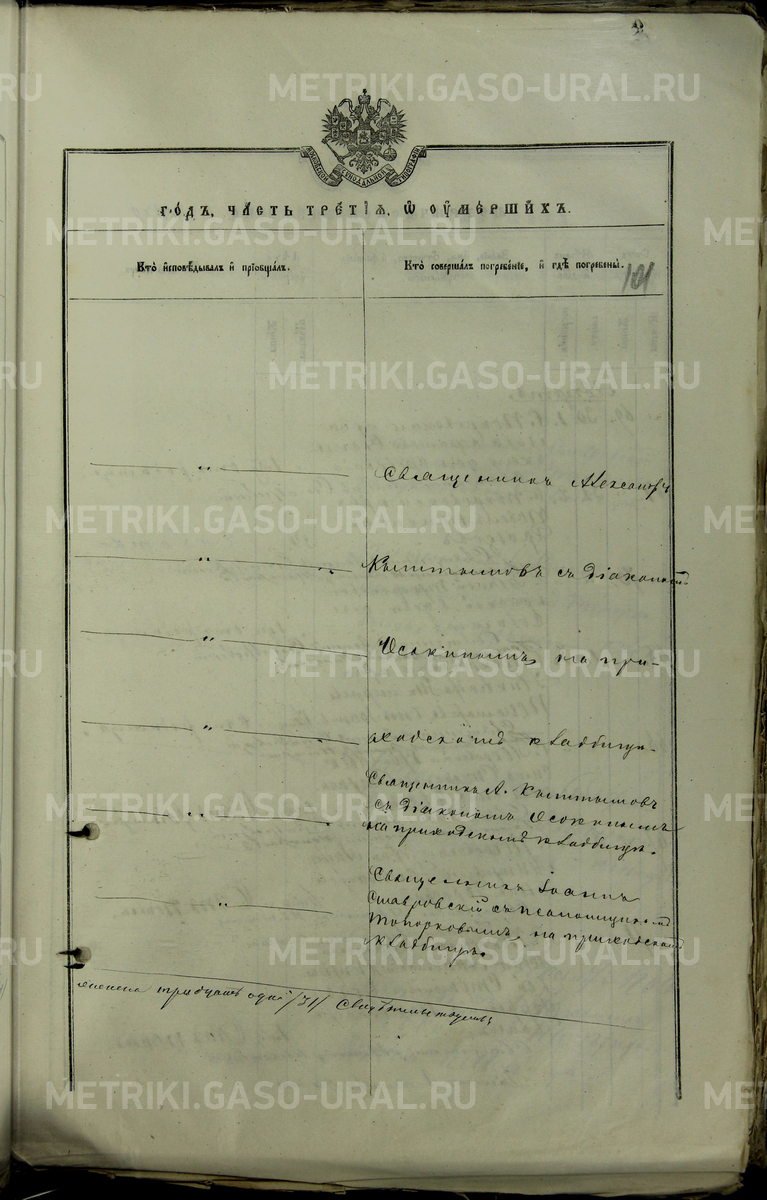 METRIKI.GASO-URAL.RU
МОСКОВСКОЙ СИНОДАЛЬНОЙ ТИПОГРАФІИ
го́дъ, ча́сть тре́тїѧ, ѡ҆ ᲂу҆ме́ршихъ.
Кто̀ и҆сповѣ́дывалъ и҆ прїѡбща́лъ.
Кто̀ соверша́лъ погребе́нїе, и҆ гдѣ̀ погребены̀.
101
Священникъ Александръ
Кыштымовъ съ діакономъ
Осокинымъ, на при-
ходскомъ кладбищѣ.
Священникъ А. Кыштымовъ
съ діакономъ Осокинымъ
на приходскомъ кладбищѣ.
Священникъ Іоаннъ
Ставровскій съ псаломщикомъ
Топорковымъ, на приходскомъ
кладбищѣ.
тридцать одна /31/ свидѣтельствуемъ
METRIKI.GASO-URAL.RU